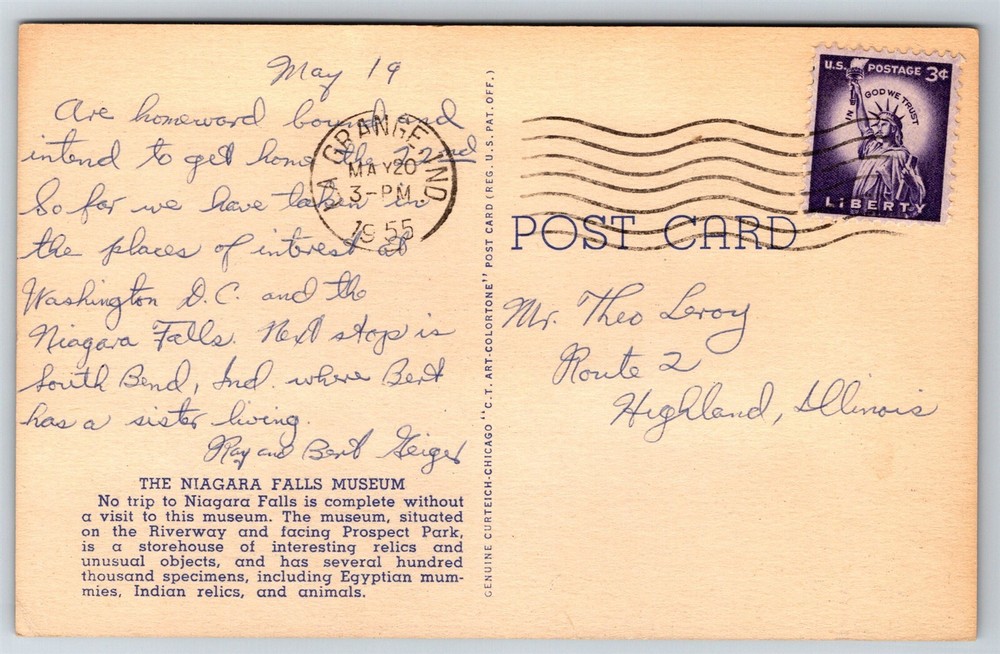 May 19
Are homeward bound and
intend to get home the 22nd
So far we have taken in
the places of interest at
Washington D.C. and the
Niagara Falls. Next stop is
South Bend, Ind. where Bert
has a sister living.
Ray and Bert Geiger
THE NIAGARA FALLS MUSEUM
No trip to Niagara Falls is complete without
a visit to this museum. The museum, situated
on the Riverway and facing Prospect Park,
is a storehouse of interesting relics and
unusual objects, and has several hundred
thousand specimens, including Egyptian mum-
mies, Indian relics, and animals.
LA GRANGE, IND
MAY 20
3-PM
1955
GENUINE CURTEICH-CHICAGO "C.T. ART-COLORTONE" POST CARD (REG. U.S. PAT. OFF.)
U.S. POSTAGE 3¢
IN GOD WE TRUST
LIBERTY
POST CARD
Mr. Theo Leroy
Route 2
Highland, Illinois